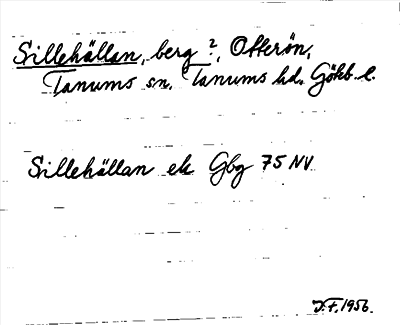 Sillehällan, berg ?, Otterön,
Tanums sn. Tanums hd. Göteb. l.
Sillehällan ek Gbg 75 NV
J.F. 1956.